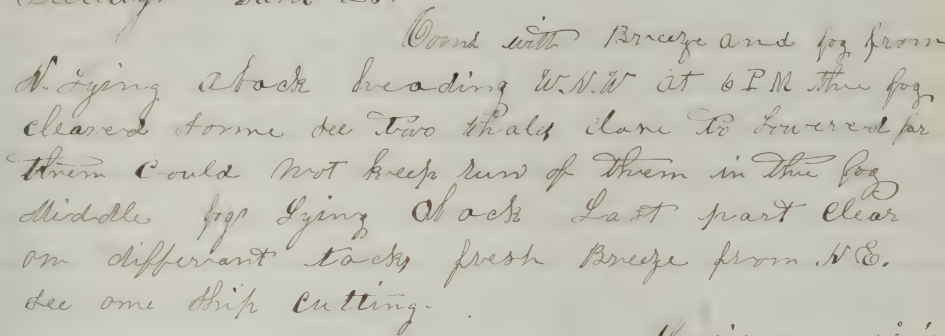 Comd with Breeze and fog from
N. Lying aback heading W.N.W at 6 PM the fog
cleared some see two Whals close to Lowered for
them could not keep run of them in the fog
Middle fog Lying aback Last part clear
on differant tacks fresh Breeze from N E.
see one ship cutting.